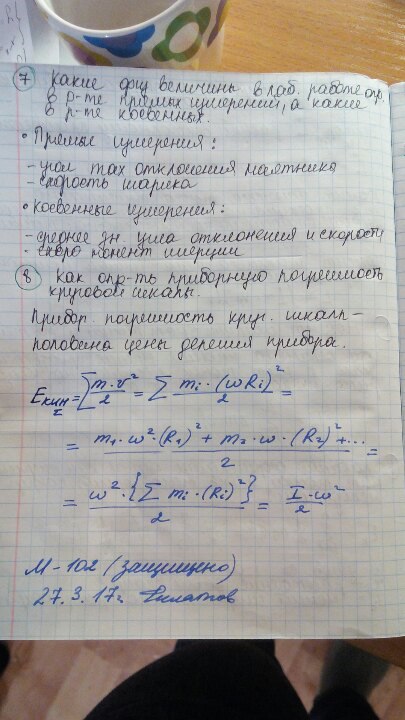 7 Какие физ величины в лаб. работе опр.
в р-те прямых измерений, а какие
в р-те косвенных.
• Прямые измерения:
- угол max отклонения маятника
- скорость шарика
• Косвенные измерения:
- среднее зн. угла отклонения и скорости
- скоро момент инерции
8 Как опр-ть приборную погрешность
круговой шкалы.
Прибор. погрешность круг. шкалы -
половина цены деления прибора.
Eкин Σ = Σ m·v²/2 = Σ mi·(ωRi)²/2 =
= (m₁·ω²·(R₁)² + m₂·ω·(R₂)² + ...)/2 =
= ω²·{Σ mi·(Ri)²}/2 = I·ω²/2
М-102 (защищено)
27.3.17г. Филатов